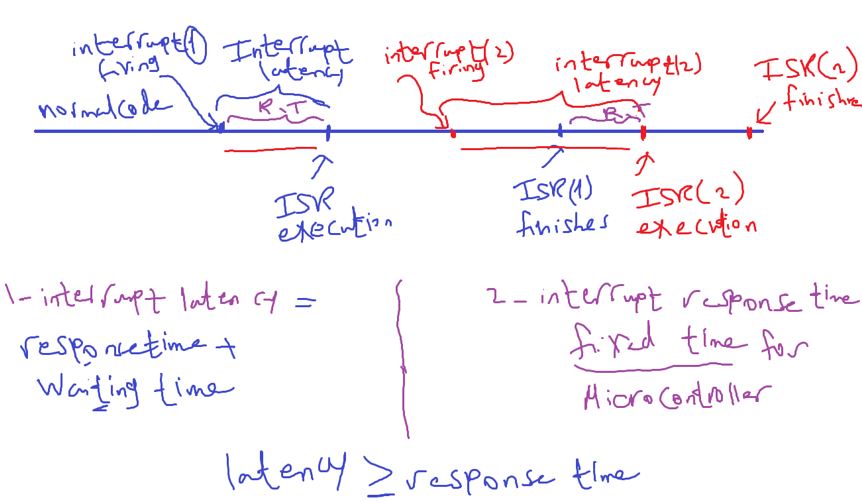 interrupt(1)
firing
Interrupt
latency
interrupt(2)
firing
interrupt(2)
latency
ISR(2)
finishes
normal code
R.T
R.T
ISR
execution
ISR(1)
finishes
ISR(2)
execution
1- interrupt latency =
response time +
Waiting time
2- interrupt response time
fixed time for
Microcontroller
latency ≥ response time